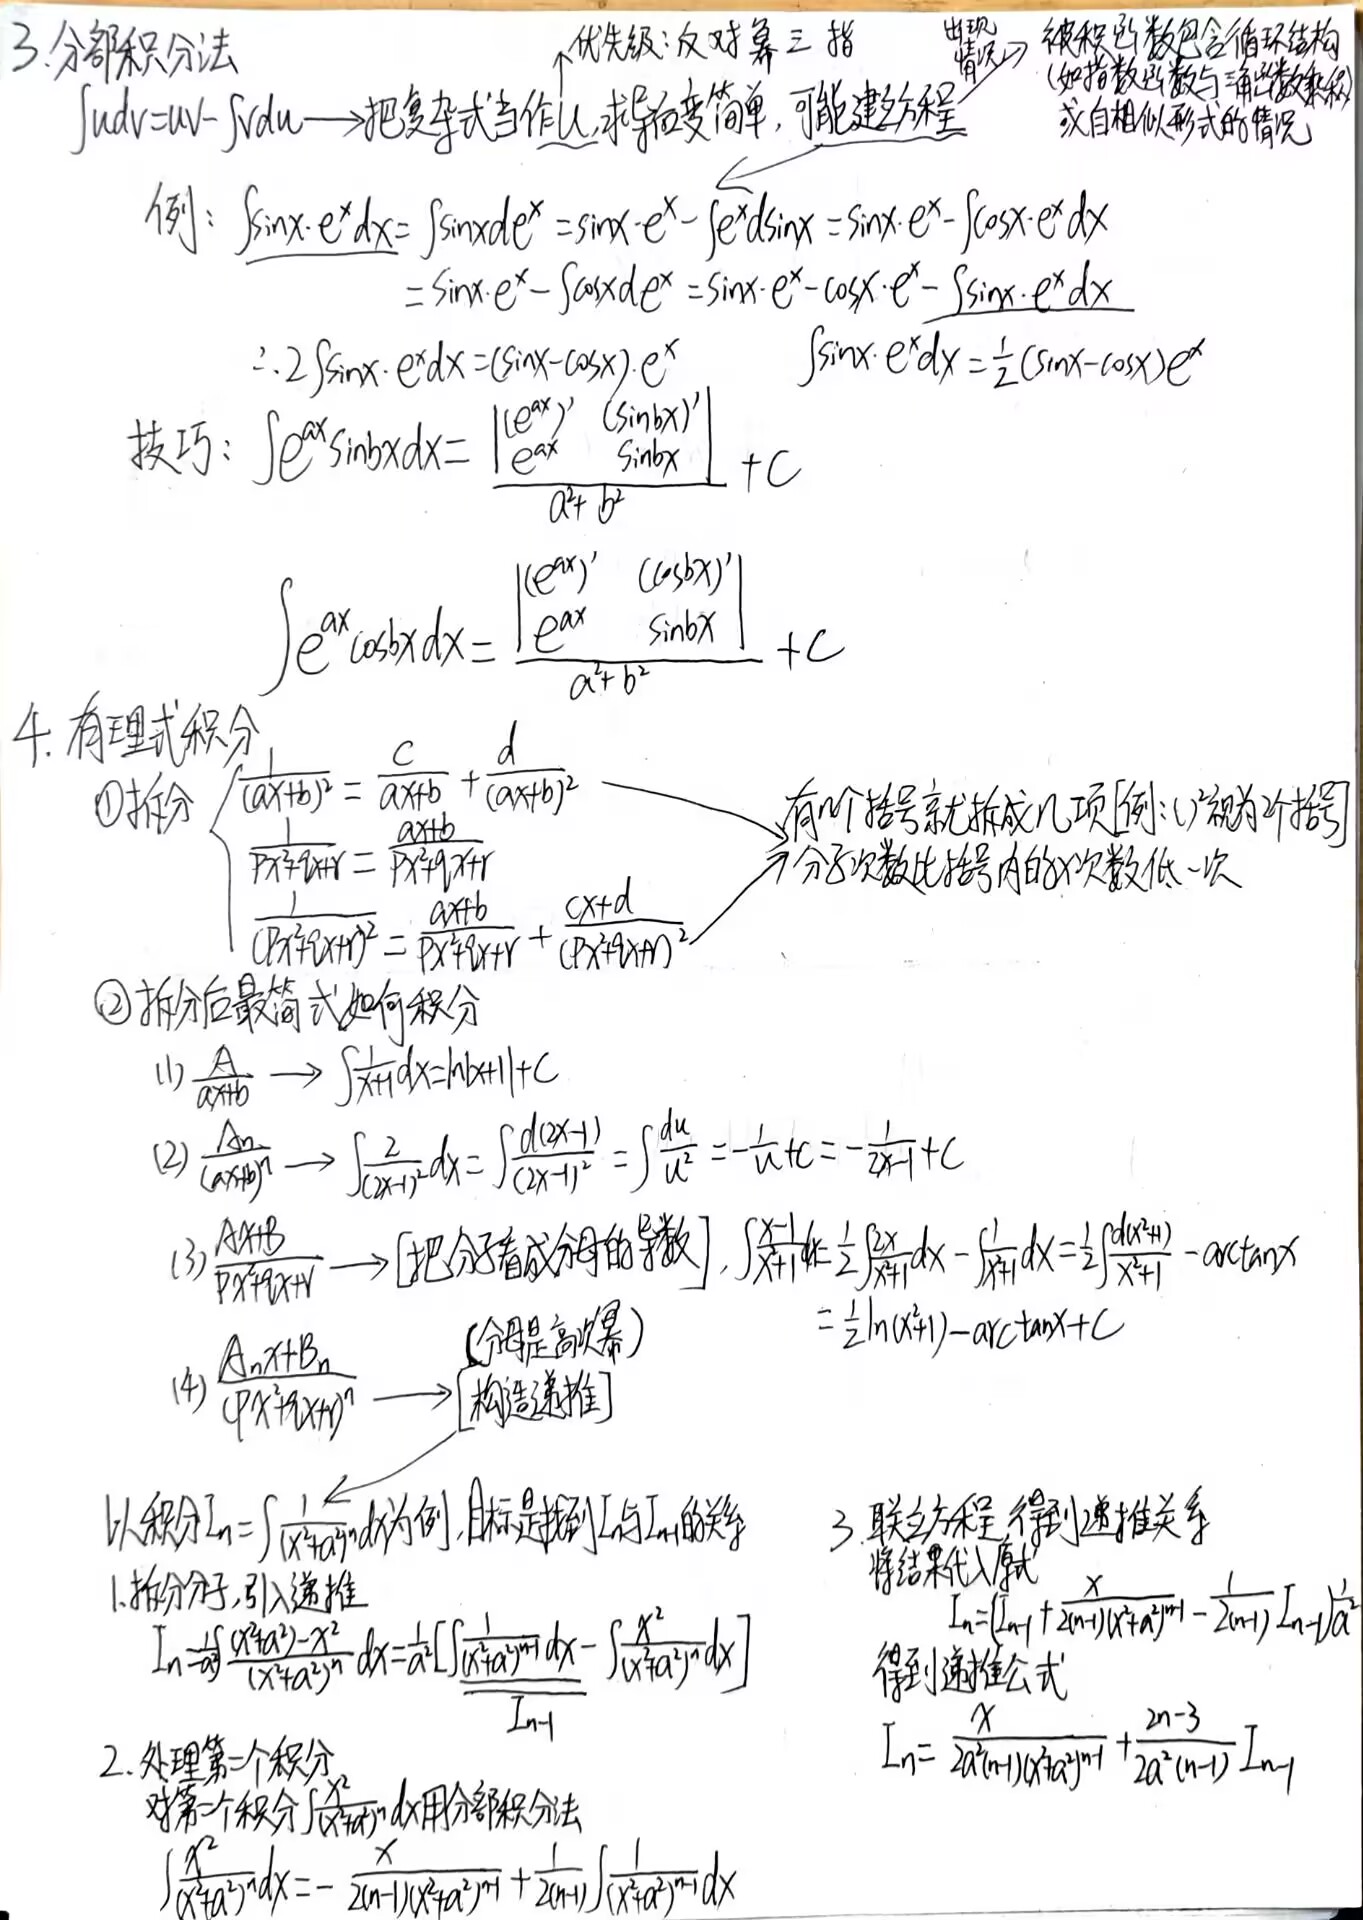 3.分部积分法
优先级:反对幂三指
出现情况→被积函数包含循环结构
(如指数函数与三角函数乘积)
或自相似形式的情况
∫udv=uv-∫vdu→把复杂式当作u,求导后变简单,可能建立方程
例:∫sinx·eˣdx=∫sinxdeˣ=sinx·eˣ-∫eˣdsinx=sinx·eˣ-∫cosx·eˣdx
=sinx·eˣ-∫cosxdeˣ=sinx·eˣ-cosx·eˣ-∫sinx·eˣdx
∴2∫sinx·eˣdx=(sinx-cosx)·eˣ ∫sinx·eˣdx=1/2(sinx-cosx)eˣ
技巧:∫e^(ax)sinbxdx=|(e^(ax))' (sinbx)'; e^(ax) sinbx|/(a²+b²)+C
∫e^(ax)cosbxdx=|(e^(ax))' (cosbx)'; e^(ax) sinbx|/(a²+b²)+C
4.有理式积分
①拆分 1/(ax+b)²=c/(ax+b)+d/(ax+b)²
1/(px²+qx+r)=(ax+b)/(px²+qx+r)
1/(px²+qx+r)²=(ax+b)/(px²+qx+r)+(cx+d)/(px²+qx+r)²
有n个括号就拆成几项[例:( )²视为2个括号]
分子次数比括号内的x次数低一次
②拆分后最简式如何积分
(1) A/(ax+b)→∫1/(x+1)dx=ln|x+1|+C
(2) Aₙ/(ax+b)ⁿ→∫2/(2x-1)²dx=∫d(2x-1)/(2x-1)²=∫du/u²=-1/u+C=-1/(2x-1)+C
(3) (Ax+B)/(px²+qx+r)→[把分子看成分母的导数],∫(x-1)/(x²+1)dx=1/2∫2x/(x²+1)dx-∫1/(x²+1)dx=1/2∫d(x²+1)/(x²+1)-arctanx
=1/2ln(x²+1)-arctanx+C
(4) (Aₙx+Bₙ)/(px²+qx+r)ⁿ→[构造递推]
(分母是高次幂)
以积分Iₙ=∫1/(x²+a²)ⁿdx为例,目标是找到Iₙ与Iₙ₋₁的关系
1.拆分分子,引入递推
Iₙ=1/a²∫((x²+a²)-x²)/(x²+a²)ⁿdx=1/a²[∫1/(x²+a²)ⁿ⁻¹dx-∫x²/(x²+a²)ⁿdx]
Iₙ₋₁
2.处理第二个积分
对第二个积分∫x²/(x²+a²)ⁿdx用分部积分法
∫x²/(x²+a²)ⁿdx=-x/(2(n-1)(x²+a²)ⁿ⁻¹)+1/(2(n-1))∫1/(x²+a²)ⁿ⁻¹dx
3.联立方程,得到递推关系
将结果代入原式
Iₙ=(Iₙ₋₁+x/(2(n-1)(x²+a²)ⁿ⁻¹)-1/(2(n-1))Iₙ₋₁)1/a²
得到递推公式
Iₙ=x/(2a²(n-1)(x²+a²)ⁿ⁻¹)+(2n-3)/(2a²(n-1))Iₙ₋₁